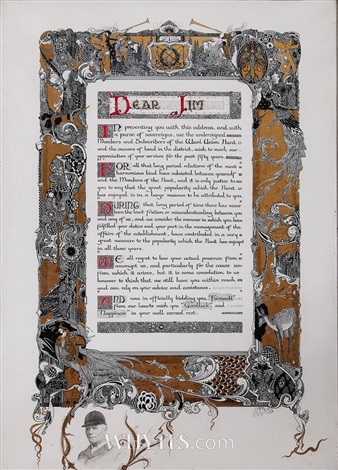 DEAR JIM
IN presenting you with this address, and with
a purse of sovereigns, we the undersigned
Members and Subscribers of the West Union Hunt
and the owners of land in the district, wish to mark our
appreciation of your services for the past fifty years.
FOR all that long period relations of the most
harmonious kind have subsisted between yourself
and the Members of the Hunt, and it is only justice to
you to say that the great popularity which the Hunt
has enjoyed is in a large measure to be attributed to you
DURING that long period of time there has never
been the least friction or misunderstanding between you
and any of us, and we consider the manner in which you have
fulfilled your duties and your part in the management of the
affairs of the establishment, have contributed in a very
great measure to the popularity which the Hunt has enjoyed
in all these years.
WE all regret to lose your actual presence from
amongst us, and particularly for the cause
from which it arises, but it is some consolation to us
however to think that we still have you within reach
and can rely on your advice and assistance.
AND now in officially bidding you "Farewell"
from our hearts wish you "Goodluck" and
"Happiness" in your well earned rest.
WHYTES.com